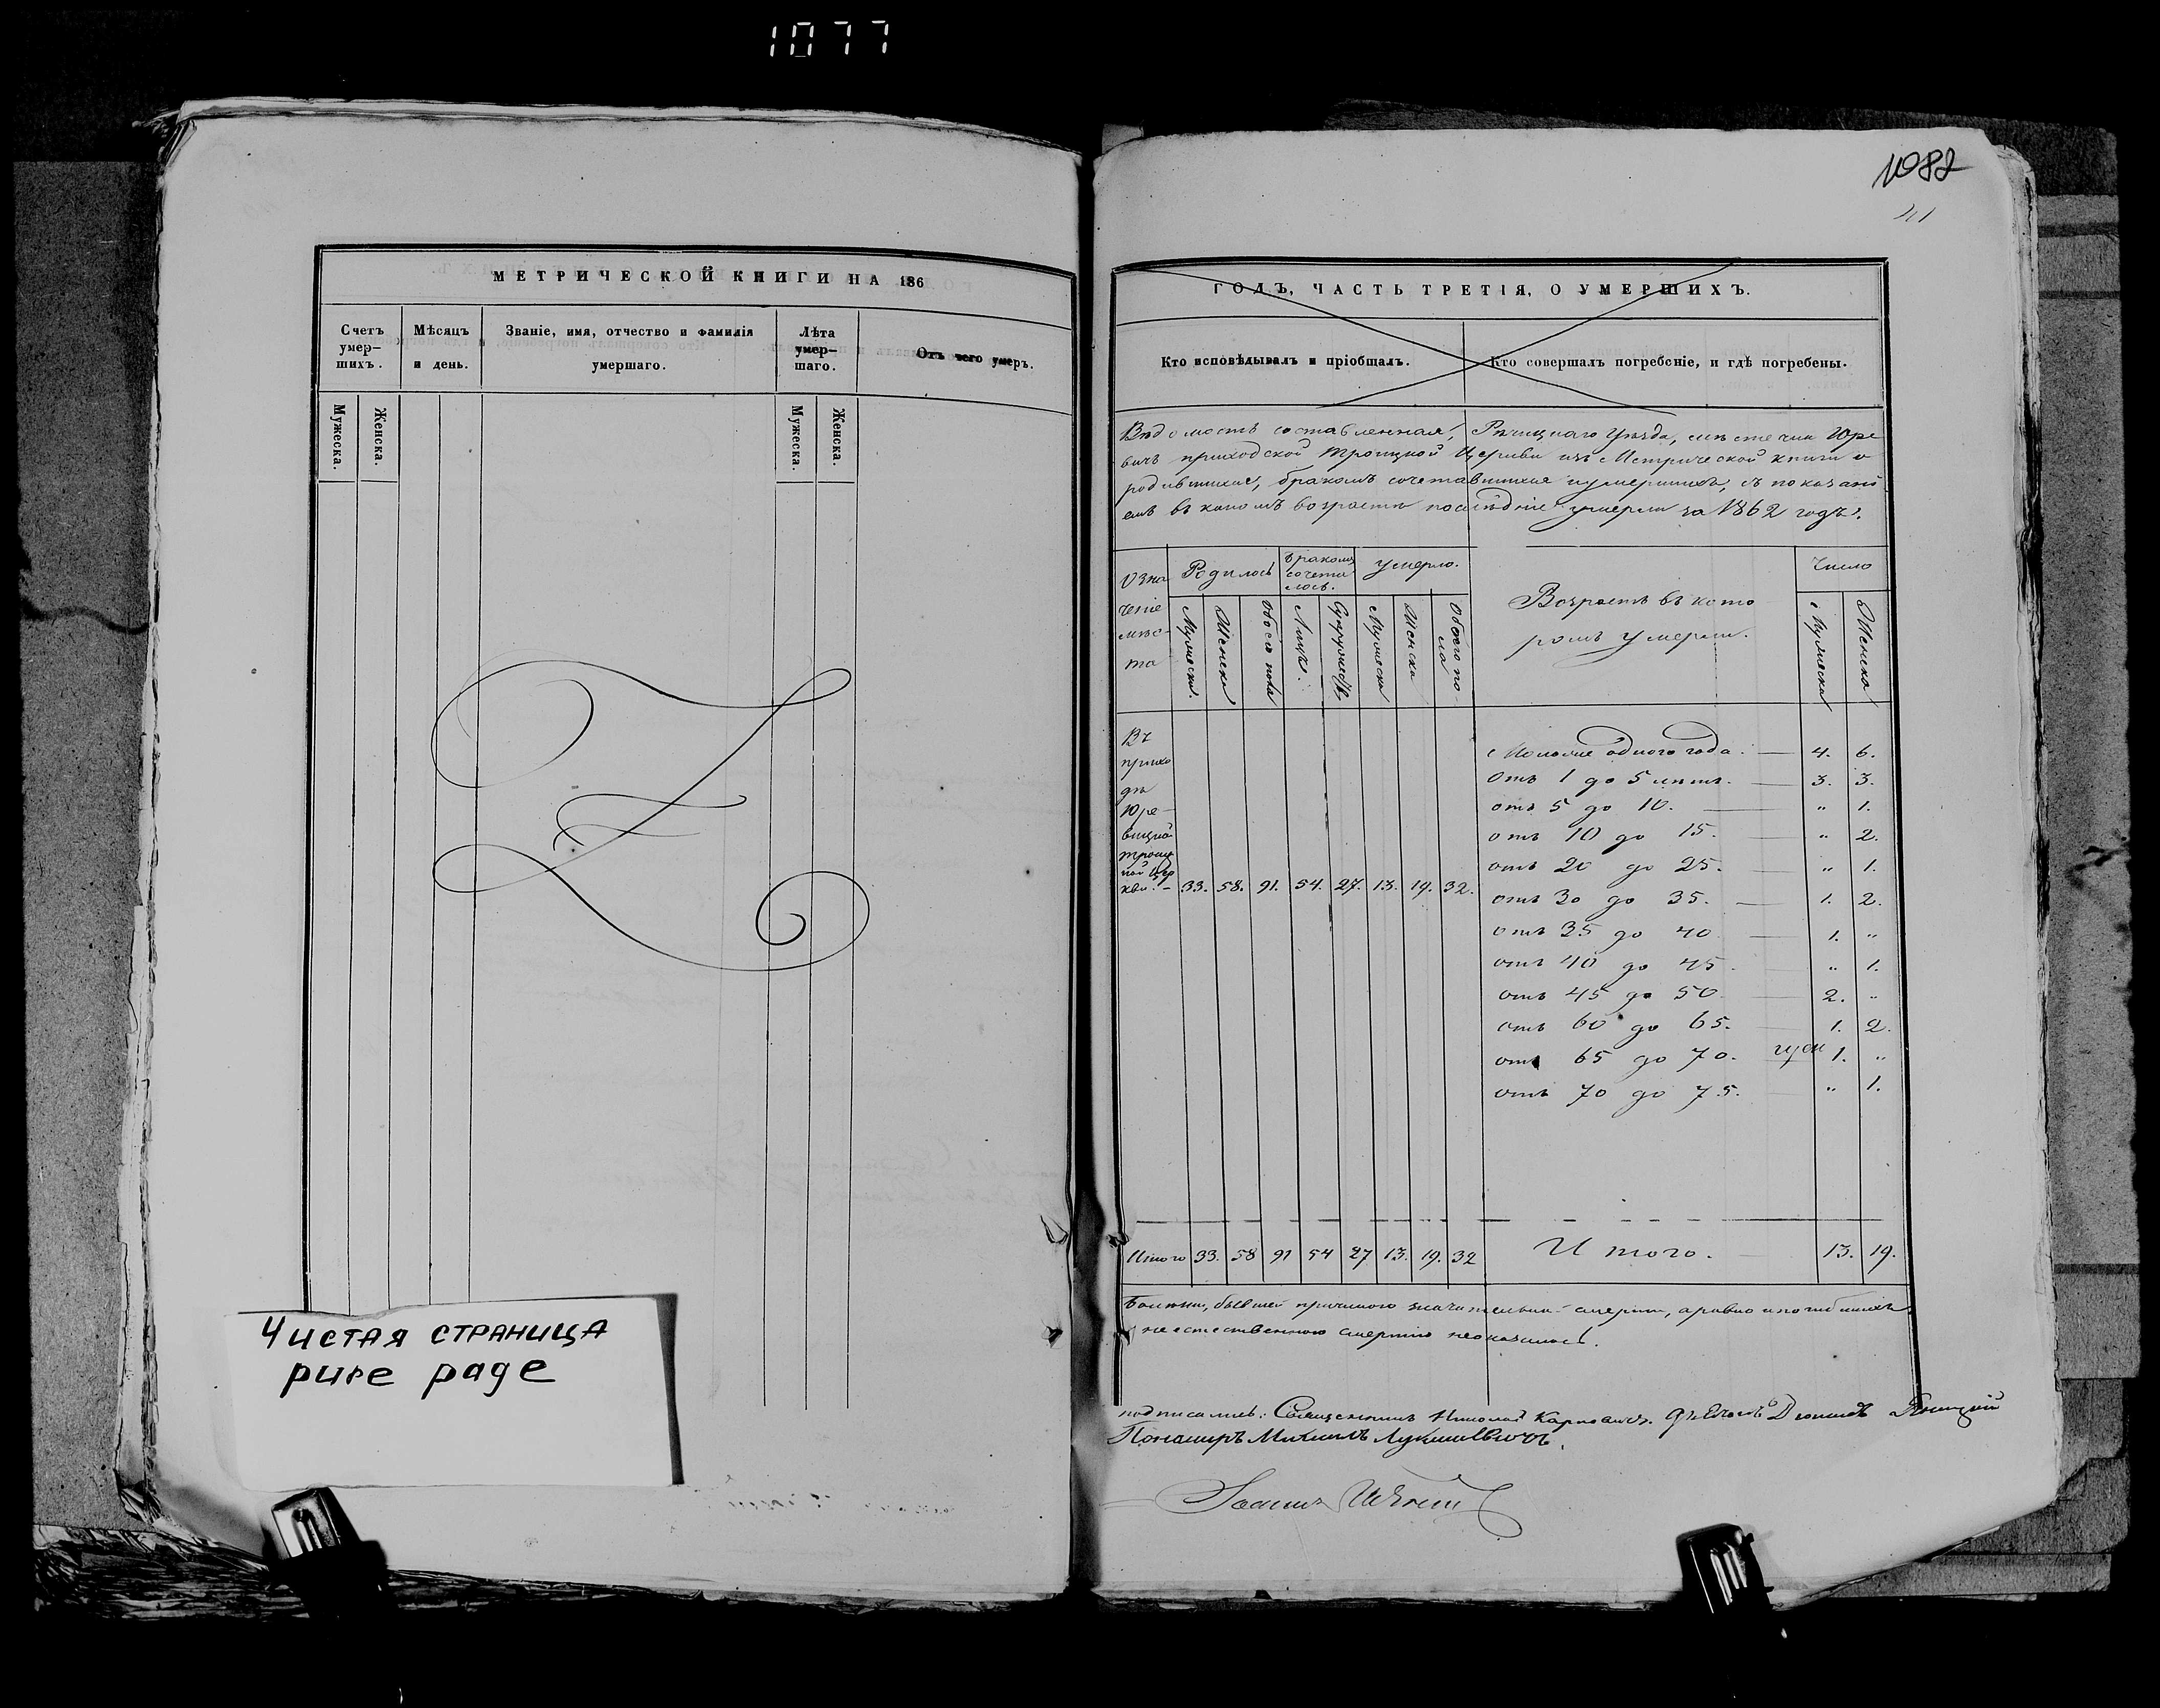 1077
1082
МЕТРИЧЕСКОЙ КНИГИ НА 186
Счетъ умер-шихъ.
Мѣсяцъ и день.
Званіе, имя, отчество и фамилія умершаго.
Лѣта умер-шаго.
Отъ чего умеръ.
Мужеска.
Женска.
Мужеска.
Женска.
Чистая страница
pure page
ГОДЪ, ЧАСТЬ ТРЕТІЯ, О УМЕРШИХЪ.
Кто исповѣдывалъ и пріобщалъ.
Кто совершалъ погребеніе, и гдѣ погребены.
Вѣдомость составленная, Рѣчицкаго Уѣзда, мѣстечка Юре
вичъ приходской Троицкой Церкви изъ Метрической книги о
родившихся, бракомъ сочетавшихся и умершихъ, съ показані
емъ въ какомъ возрастѣ послѣдніе умерли за 1862 годъ.
Озна
ченіе
мѣс-
та
Родилось
Бракомъ
сочета
лось.
Умерло.
Возрастъ въ кото
ромъ умерли.
Число
Мужеска.
Женска
Обоего пола
Лицъ.
Супружествъ
Мужеска
Женска
Обоего по-
ла
Мужеска
Женска
Въ
прихо
дѣ
Юре-
вицкой
Троиц
кой Цер
кви. – 33. 58. 91. 54. 27. 13. 19. 32.
Моложе одного года. — 4. 6.
Отъ 1 до 5 лѣтъ. — 3. 3.
отъ 5 до 10. — „ 1.
отъ 10 до 15. — „ 2.
отъ 20 до 25. — „ 1.
отъ 30 до 35. — 1. 2.
отъ 35 до 40 — 1. „
отъ 40 до 45. — „ 1.
отъ 45 до 50 — 2. „
отъ 60 до 65. — 1. 2.
отъ 65 до 70. — 1. „
отъ 70 до 75. — „ 1.
Итого 33. 58 91 54 27 13. 19. 32
Итого. — 13. 19.
Болѣзни, бывшей причиною значительной смерти, а равно и погибшихъ
неестественною смертію неоказалось.
подписались: Священникъ Николай Карповичъ. Дьячокъ Дліонисій
Пономарь Михаилъ Лукашевичъ.